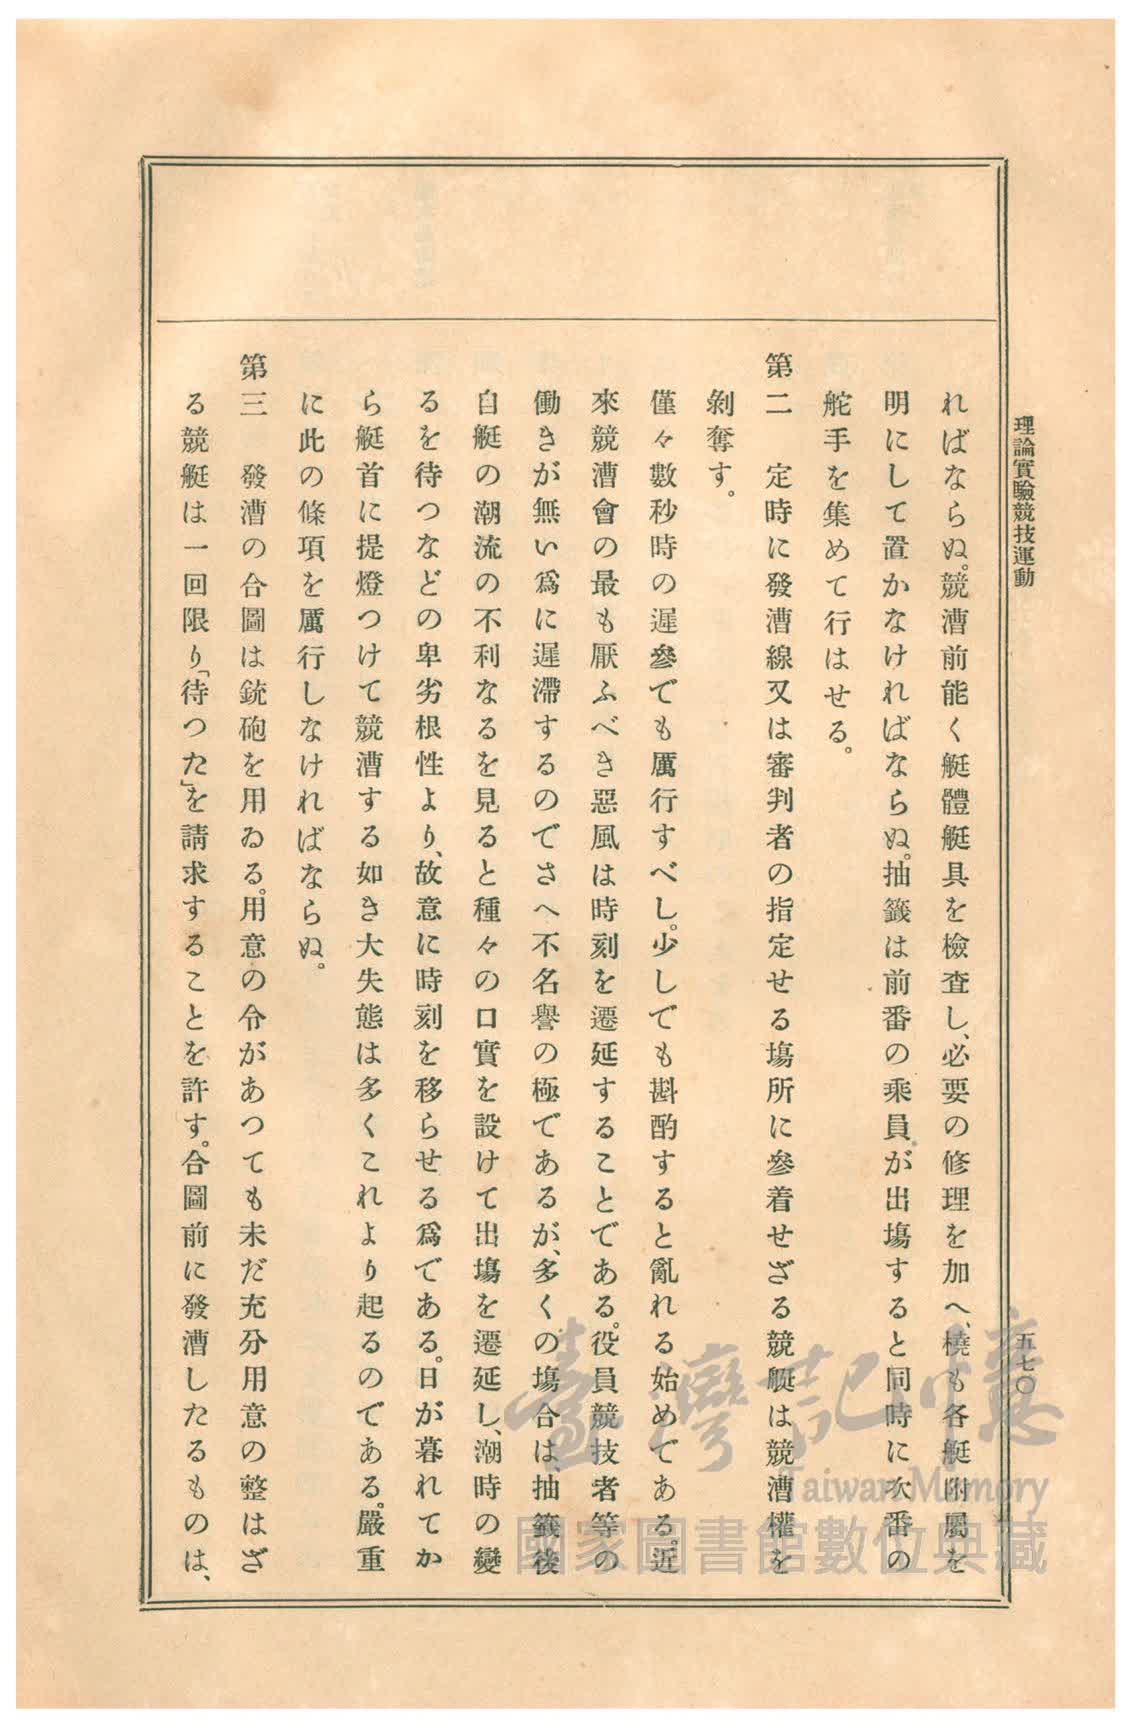 理論實驗競技運動
五七〇
ればならぬ。競漕前能く艇體艇具を檢査し、必要の修理を加へ、橈も各艇附屬を
明にして置かなければならぬ。抽籤は前番の乘員が出塲すると同時に次番の
舵手を集めて行はせる。
第二 定時に發漕線又は審判者の指定せる塲所に參着せざる競艇は競漕權を
剝奪す。
僅々數秒時の遲參でも厲行すべし。少しでも斟酌すると亂れる始めである。近
來競漕會の最も厭ふべき惡風は時刻を遷延することである。役員競技者等の
働きが無い爲に遲滯するのでさへ不名譽の極であるが、多くの塲合は、抽籤後
自艇の潮流の不利なるを見ると種々の口實を設けて出塲を遷延し、潮時の變
るを待つなどの卑劣根性より、故意に時刻を移らせる爲である。日が暮れてか
ら艇首に提燈つけて競漕する如き大失態は多くこれより起るのである。嚴重
に此の條項を厲行しなければならぬ。
第三 發漕の合圖は銃砲を用ゐる。用意の令があつても未だ充分用意の整はざ
る競艇は一回限り「待つた」を請求することを許す。合圖前に發漕したるものは、
臺灣記憶
Taiwan Memory
國家圖書館數位典藏